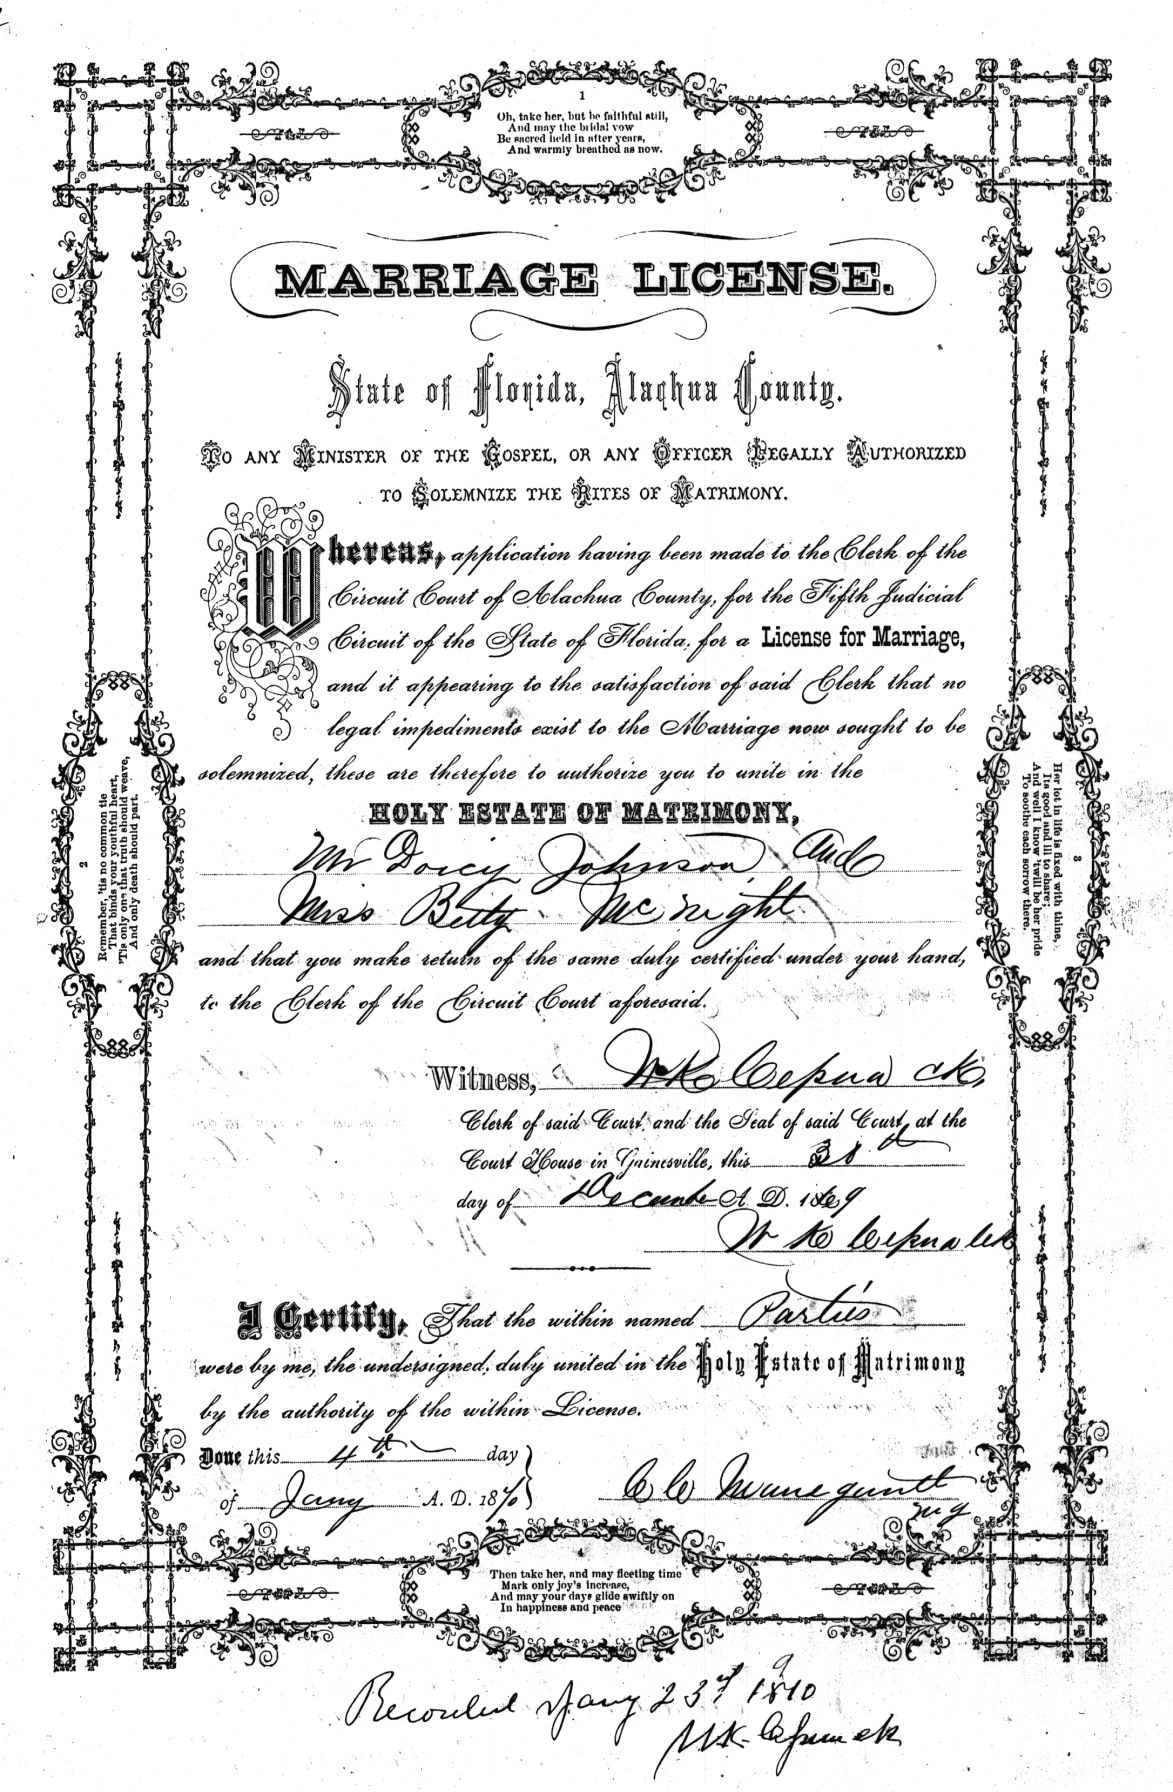 1
Oh, take her, but be faithful still,
And may the bridal vow
Be sacred held in after years,
And warmly breathed as now.
MARRIAGE LICENSE.
State of Florida, Alachua County.
TO ANY MINISTER OF THE GOSPEL, OR ANY OFFICER LEGALLY AUTHORIZED
TO SOLEMNIZE THE RITES OF MATRIMONY.
Whereas, application having been made to the Clerk of the
Circuit Court of Alachua County, for the Fifth Judicial
Circuit of the State of Florida, for a License for Marriage,
and it appearing to the satisfaction of said Clerk that no
legal impediments exist to the Marriage now sought to be
solemnized, these are therefore to authorize you to unite in the
HOLY ESTATE OF MATRIMONY,
Mr Dorcy Johnson, And
Miss Betty McNight
and that you make return of the same duly certified under your hand,
to the Clerk of the Circuit Court aforesaid.
Witness, W K Cepna ck,
Clerk of said Court, and the Seal of said Court, at the
Court House in Gainesville, this
day of December A. D. 1869
W K Cepna clk
I Certify, That the within named Parties
were by me, the undersigned, duly united in the Holy Estate of Matrimony
by the authority of the within License.
Done this 4th day
of Jany A. D. 1870
2
Remember, 'tis no common tie
That binds your youthful heart,
'Tis only one that truth should weave,
And only death should part.
3
Her lot in life is fixed with thine,
Its good and ill to share;
And well I know 'twill be her pride
To soothe each sorrow there.
Then take her, and may fleeting time
Mark only joy's increase,
And may your days glide swiftly on
In happiness and peace
Recorded Jany 23d 1870